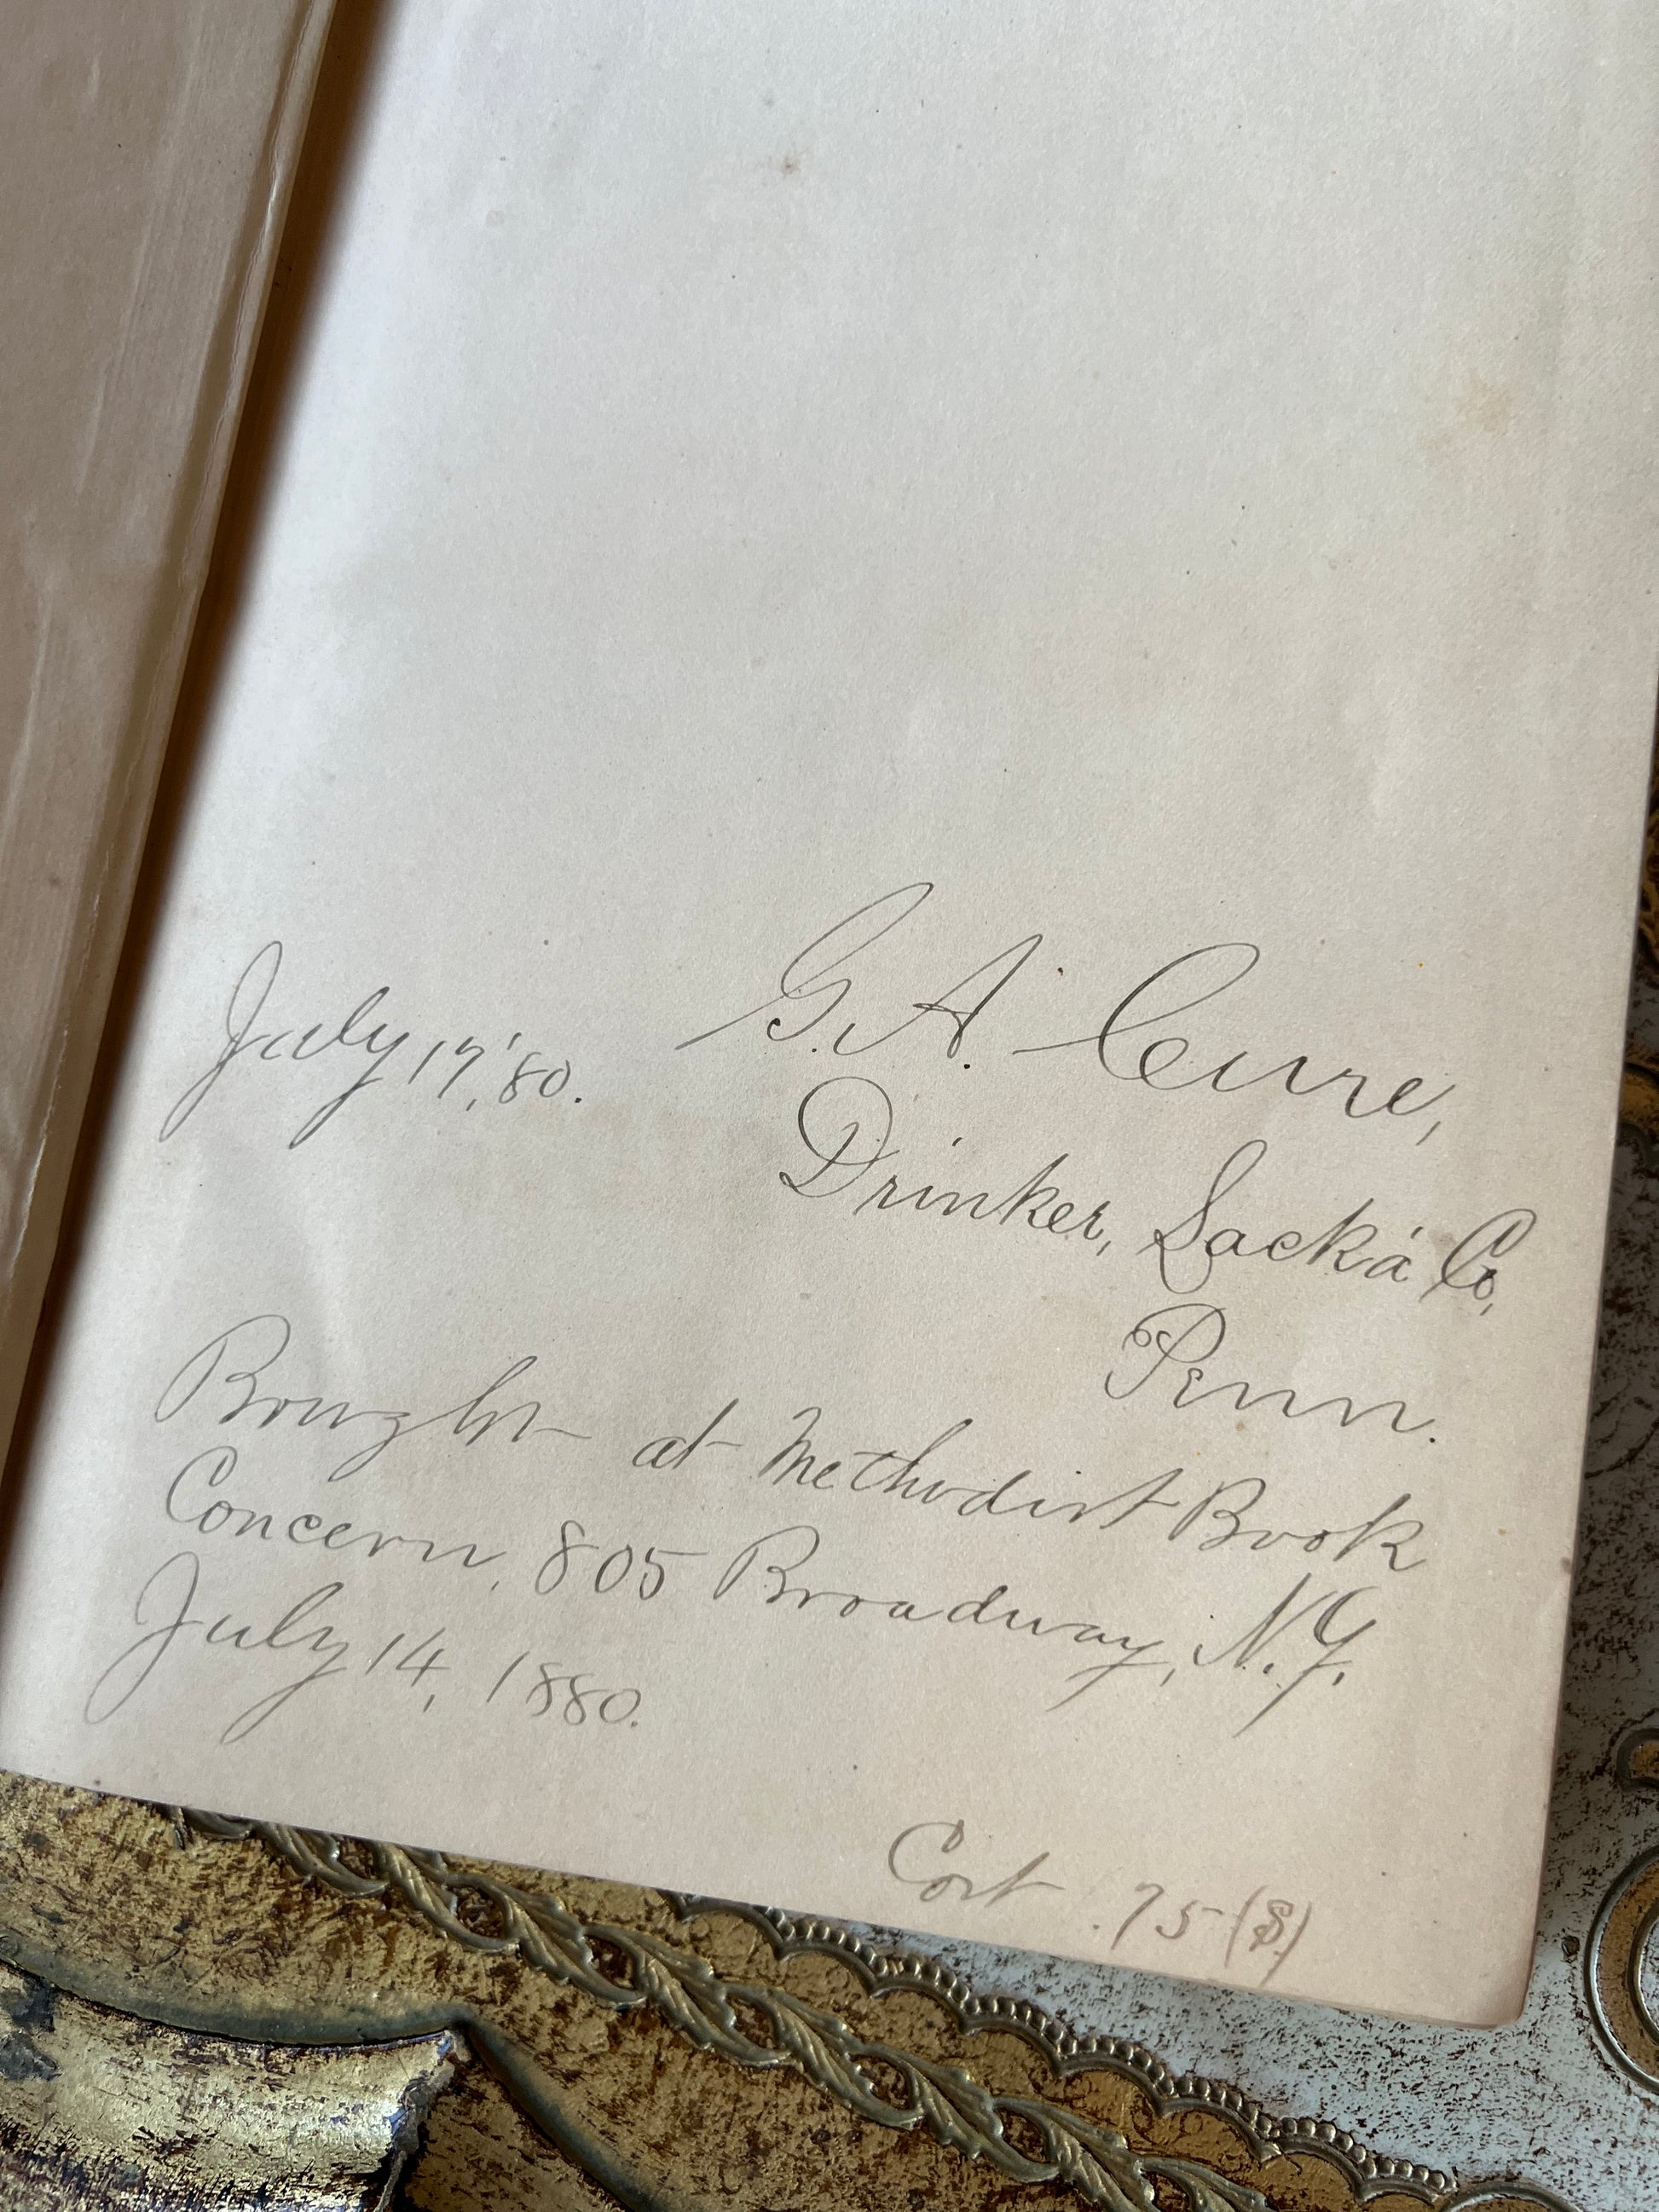 July 17, '80.
G. A. Cure,
Drinker, Lack'a Co,
Penn.
Bought at Methodist Book
Concern, 805 Broadway, N.Y.
July 14, 1880.
Cost .75 ($)